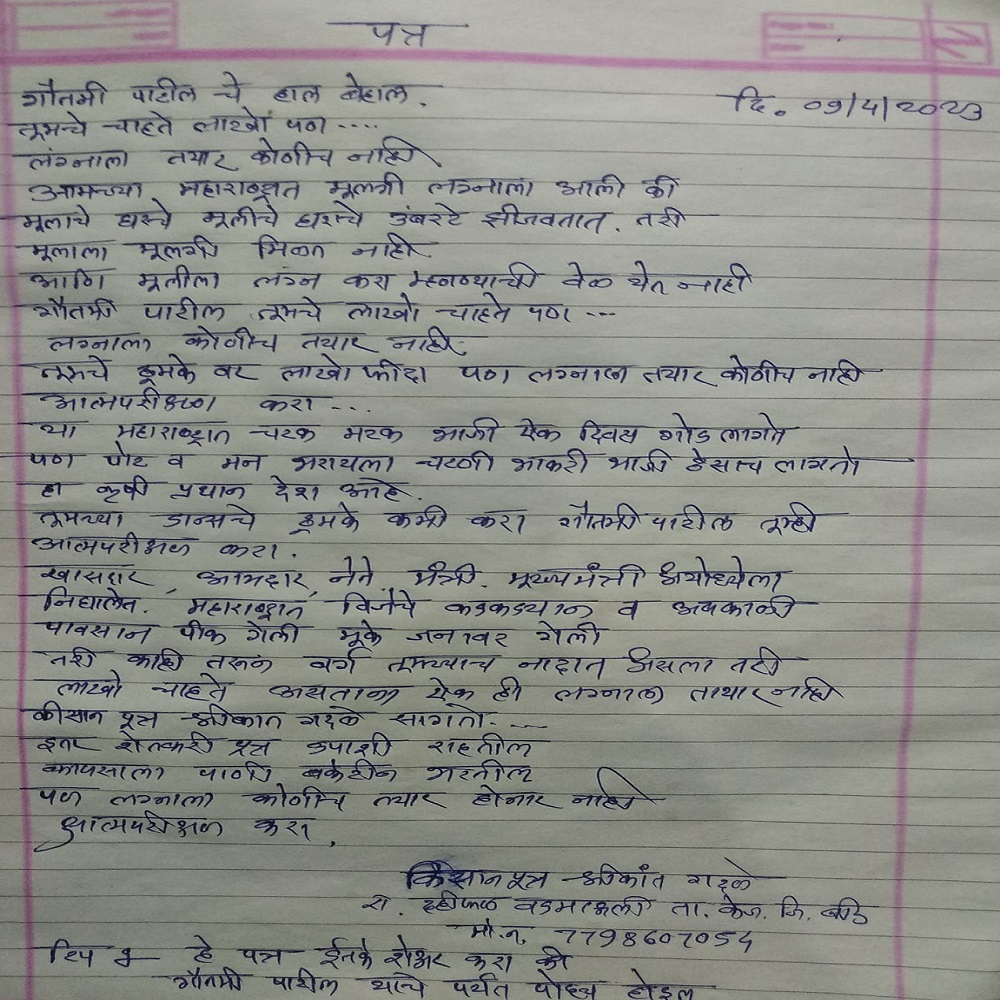 पत्र
गौतमी पाटील चे हाल बेहाल.
दि. 09/4/2023
तूमचे चाहते लाखों पण ....
लंग्नाला तयार कोणीच नाही
आमच्या महाराष्ट्रात मूलगी लग्नाला आली की
मूलाचे घरचे मूलीचे घरचे उंबरटे झीजवतात. तरी
मूलाला मूलगी मिळत नाही
आणि मूलीला लंग्न करा म्हनण्याची वेळ येत नाही
गौतमी पाटील तूमचे लाखो चाहते पण ...
लग्नाला कोणीच तयार नाही.
तूमचे ठूमके वर लाखो फीदा पण लग्नाला तयार कोणीच नाही
आत्मपरीक्षण करा ...
या महाराष्ट्रात चटक मटक भाजी येक दिवस गोड लागते
पण पोट व मन भरायला चटणी भाकरी भाजी हेसच लागतो
हा कृषी प्रधान देश आहे.
तूमच्या डान्सचे ठूमके कमी करा गौतमी पाटील तूम्ही
आत्मपरीक्षण करा.
खासदार, आमदार, नेते, मंत्री. मूख्यमंत्री अयोध्येला
निघालेत. महाराष्ट्रात विजेचे कडकड्यान व अवकाळी
पावसान पीक गेली मूके जनावर गेली
तरी काही तरून वर्ग तूमच्याच नादात असला तरी
लाखो चाहते असताना येक ही लग्नाला तायार नाही
कीसान पूत्र श्रीकांत गदळे सागतो. ....
इतर शेतकरी पूत्र उपाशी राहतील
कापसाला पाणी बकेटीन भरतील
पण लग्नाला कोणीच तयार होनार नाही
आत्मपरीक्षण करा.
किसान पूत्र श्रीकांत गदळे
रा. दहीफळ वडमाऊली ता. केज. जि. बीड
मो.न. 7798607054
टिप हे पत्र ईतके शेअर करा की
गौतमी पाटील यांचे पर्यंत पोहच होइल